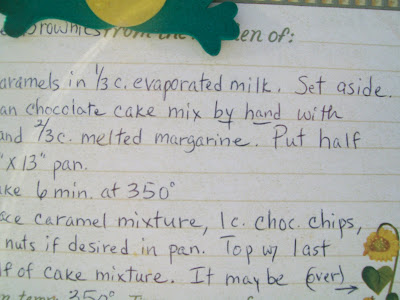 Brownies from the en of:
aramels in 1/3 c. evaporated milk. Set aside.
an chocolate cake mix by hand with
and 2/3 c. melted margarine. Put half
" X 13" pan.
ke 6 min. at 350°
ce caramel mixture, 1 c. choc. chips,
nuts if desired in pan. Top w/ last
lf of cake mixture. It may be (over) →
350°